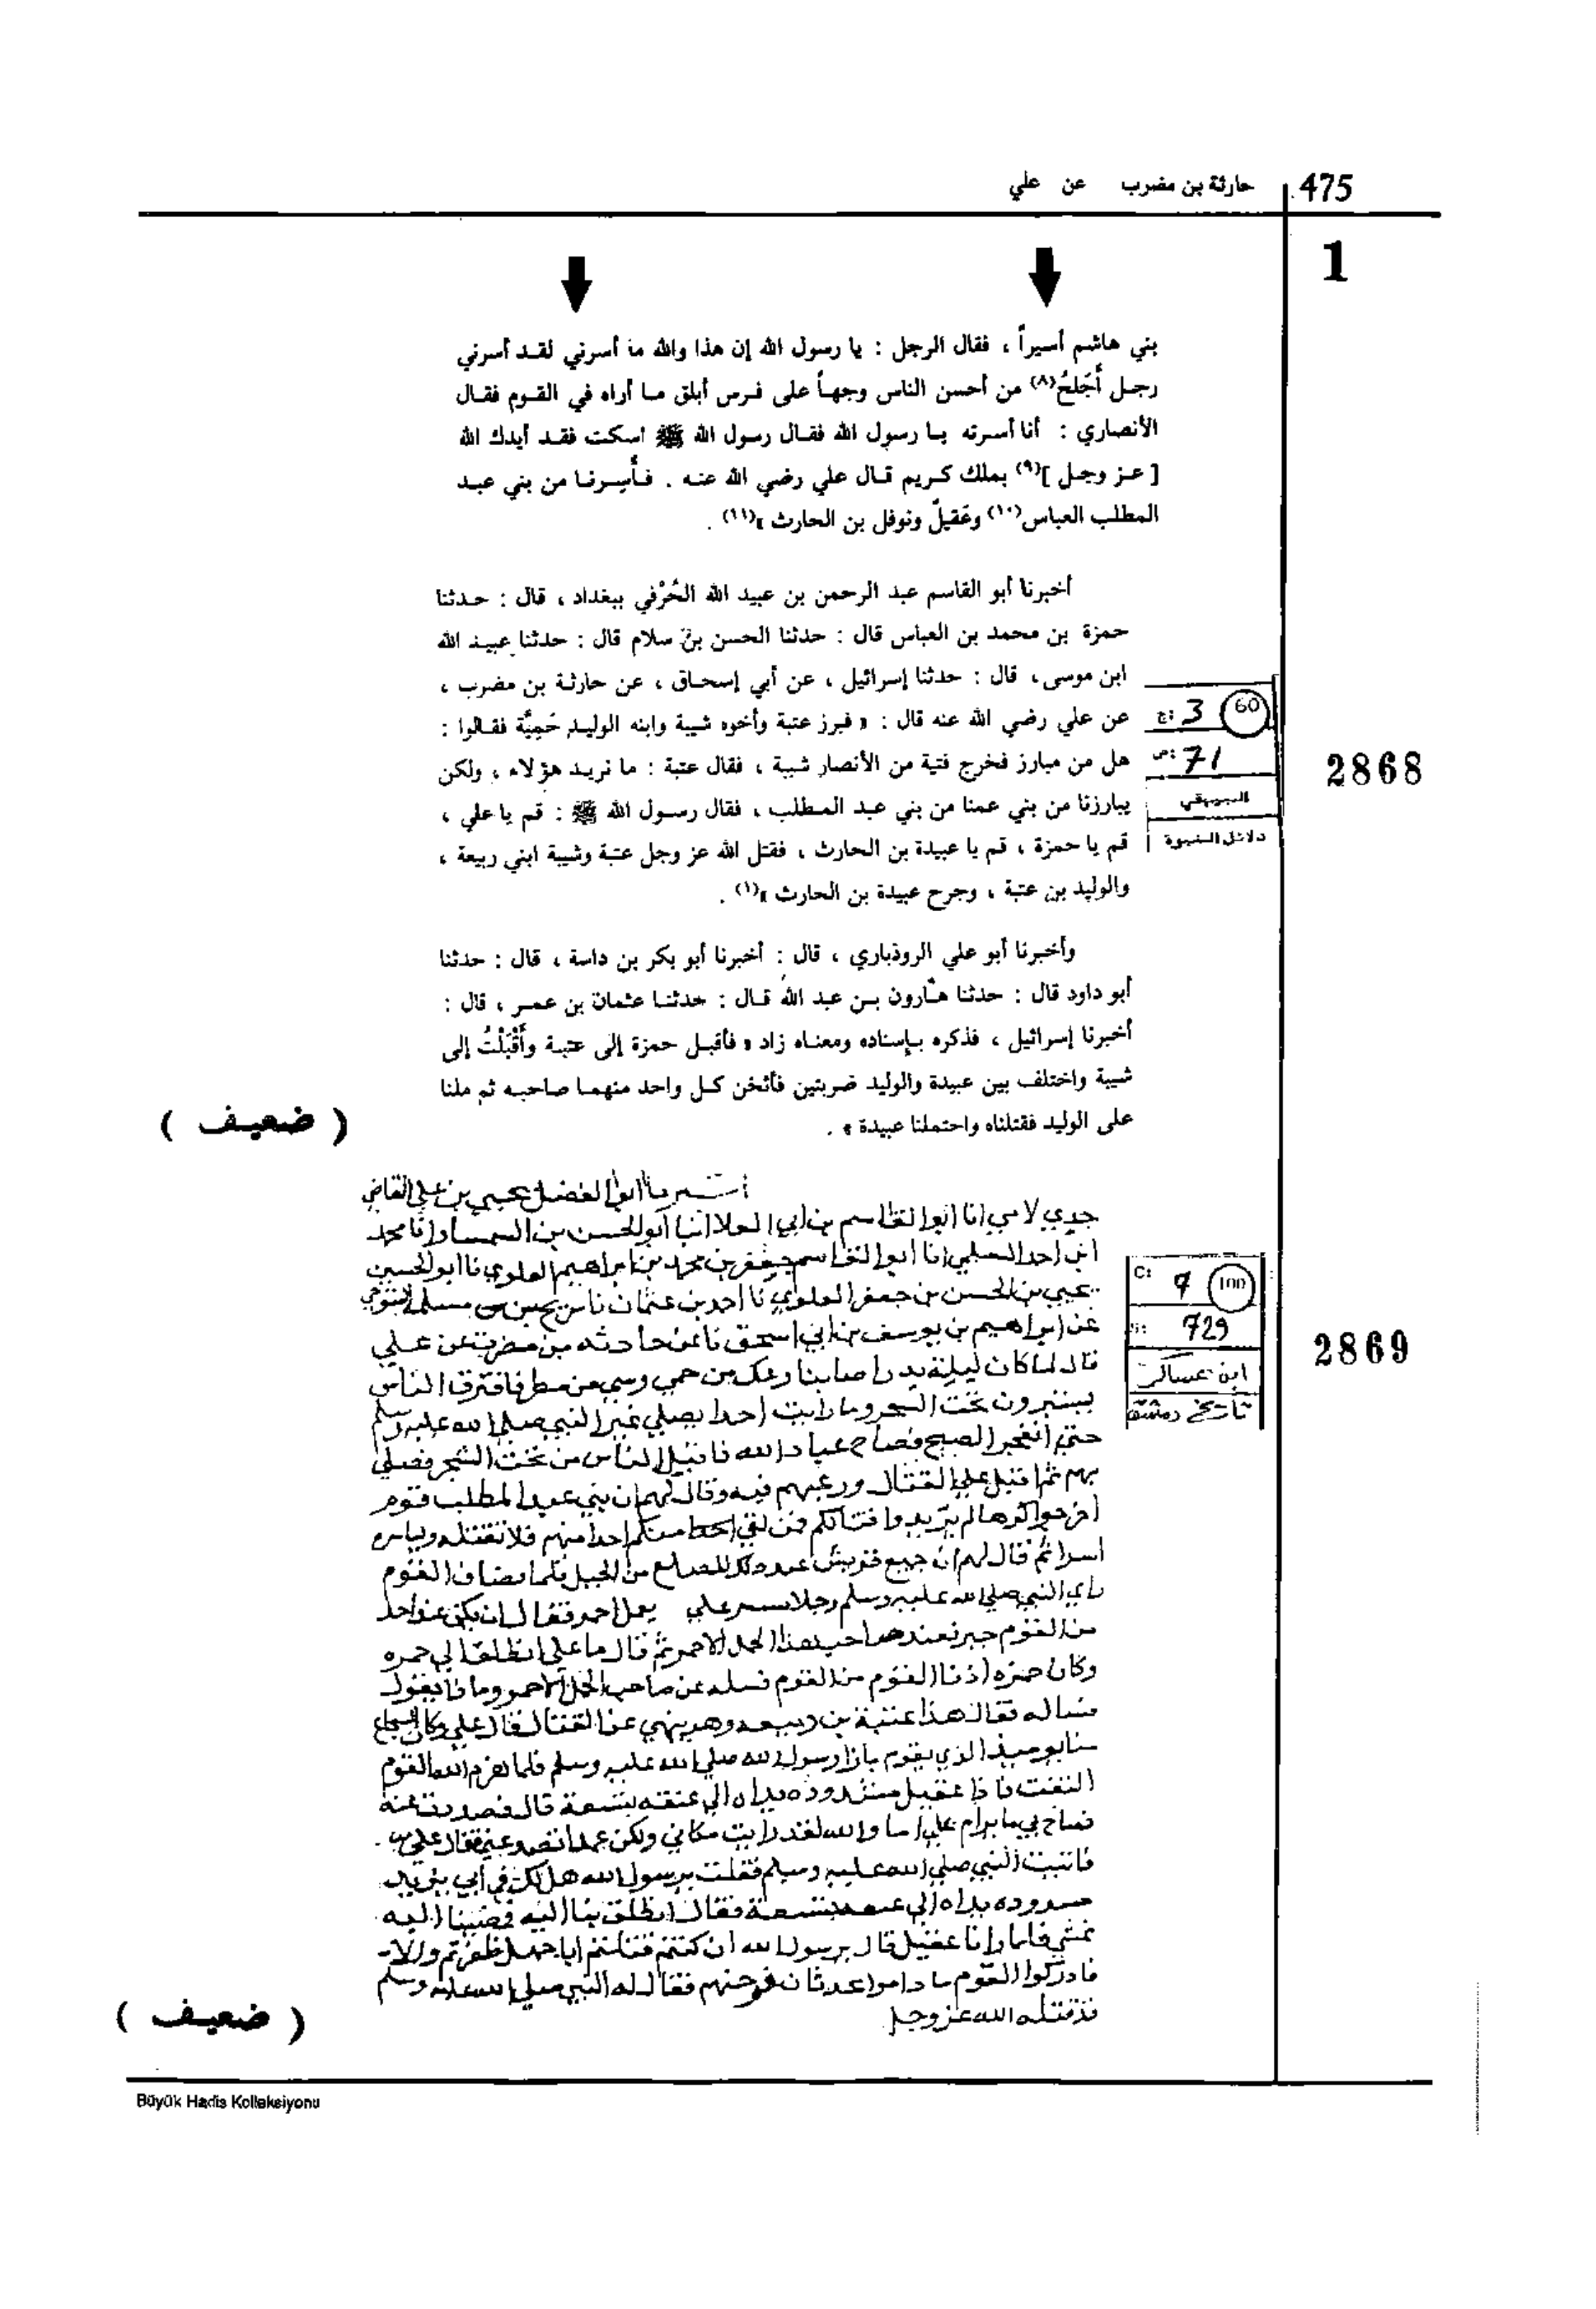 475
حارثة بن مضرب عن علي
1
بني هاشم أسيراً ، فقال الرجل : يا رسول الله إن هذا والله ما أسرني لقد أسرني
رجل أَجْلَحُ(٨) من أحسن الناس وجهاً على فرس أبلق ما أراه في القوم فقال
الأنصاري : أنا أسرته يا رسول الله فقال رسول الله ﷺ اسكت فقد أيدك الله
[ عز وجل ](٩) بملك كريم قال علي رضي الله عنه . فأُسِرنا من بني عبد
المطلب العباس(١٠) وعَقيلٌ ونوفل بن الحارث »(١١) .
أخبرنا أبو القاسم عبد الرحمن بن عبيد الله الحُرْفي ببغداد ، قال : حدثنا
حمزة بن محمد بن العباس قال : حدثنا الحسن بن سلام قال : حدثنا عبيد الله
ابن موسى ، قال : حدثنا إسرائيل ، عن أبي إسحاق ، عن حارثة بن مضرب ،
عن علي رضي الله عنه قال : « فبرز عتبة وأخوه شيبة وابنه الوليد حَمِيَّة فقالوا :
هل من مبارز فخرج فتية من الأنصار شببة ، فقال عتبة : ما نريد هؤلاء ، ولكن
يبارزنا من بني عمنا من بني عبد المطلب ، فقال رسول الله ﷺ : قم يا علي ،
قم يا حمزة ، قم يا عبيدة بن الحارث ، فقتل الله عز وجل عتبة وشيبة ابني ربيعة ،
والوليد بن عتبة ، وجرح عبيدة بن الحارث »(١) .
ج: 3 60
ص: 71
البيهقي
دلائل النبوة
2868
وأخبرنا أبو علي الروذباري ، قال : أخبرنا أبو بكر بن داسة ، قال : حدثنا
أبو داود قال : حدثنا هارون بن عبد الله قال : حدثنا عثمان بن عمر ، قال :
أخبرنا إسرائيل ، فذكره بإسناده ومعناه زاد « فأقبل حمزة إلى عتبة وأَقْبَلْتُ إلى
شيبة واختلف بين عبيدة والوليد ضربتين فأثخن كل واحد منهما صاحبه ثم ملنا
على الوليد فقتلناه واحتملنا عبيدة » .
( ضعيف )
ابو الفضل يحيى بن علي القاضي
جدي لامي انا ابو القاسم بن ابي العلا انبا ابو الحسن بن السمسار انا محمد
ابن احمد السلمي انا ابو القاسم جعفر بن محمد بن ابراهيم العلوي نا ابو الحسين
يحيي بن الحسن بن جعفر العلوي نا احمد بن عثمان نا شريح بن مسلم التنوخي
عن ابراهيم بن يوسف بن ابي اسحق نا عن حارثه بن مضرب عن علي
قال لما كان ليلة بدر اصابنا وعك من حمي وسي من مطر فافترق الناس
يستترون تحت الشجر وما رايت احدا يصلي غير النبي صلي الله عليه وسلم
حتي انفجر الصبح فصاح عباد الله فاقبل الناس من تحت الشجر فصلي
بهم ثم اقبل علي القتال ورغبهم فيه وقال لهم ان بني عبد المطلب قوم
اخرجوا كرها لم يريدوا قتالكم فمن لقي احد منكم احدا منهم فلا تقتله وليأسره
اسرا ثم قال لهم ان جميع قريش عند من الجبل فلما تصاف القوم
راي النبي صلي الله عليه وسلم رجلا يسير علي جمل احمر فقال ان يكن عند احد
من القوم خير فعند صاحب هذا الجمل الاحمر ثم قال يا علي انطلق الي حمزه
وكان حمزه ادنا القوم من القوم فسله عن صاحب الجمل الاحمر وما ذا يقول
فساله فقال هذا عتبة بن ربيعه وهو ينهي عن القتال فقال علي وكان الشجاع
منا يوميذ الذي يقوم بازا رسول الله صلي الله عليه وسلم فلما هزم الله القوم
التفت فاذا عقيل مشدوده يداه الي عنقه بنسعة قال فصددت عنه
فصاح بي يا بن ام علي اما والله لقد رايت مكاني ولكن عمدا تصد عني فقال علي
فاتيت النبي صلي الله عليه وسلم فقلت يرسول الله هل لك في ابي يزيد
مشدوده يداه الي عنقه بنسعة فقال انطلق بنا اليه فمضينا اليه
نمشي فلما رانا عقيل قال يرسول الله ان كنتم قتلتم ابا جهل ظفرتم والا
فادركوا القوم ما داموا بحدثان قرحتهم فقال له النبي صلي الله عليه وسلم
قد قتله الله عز وجل
C: 7 100
S: 729
ابن عساكر
تاريخ دمشق
2869
( ضعيف )
Büyük Hadis Kolleksiyonu